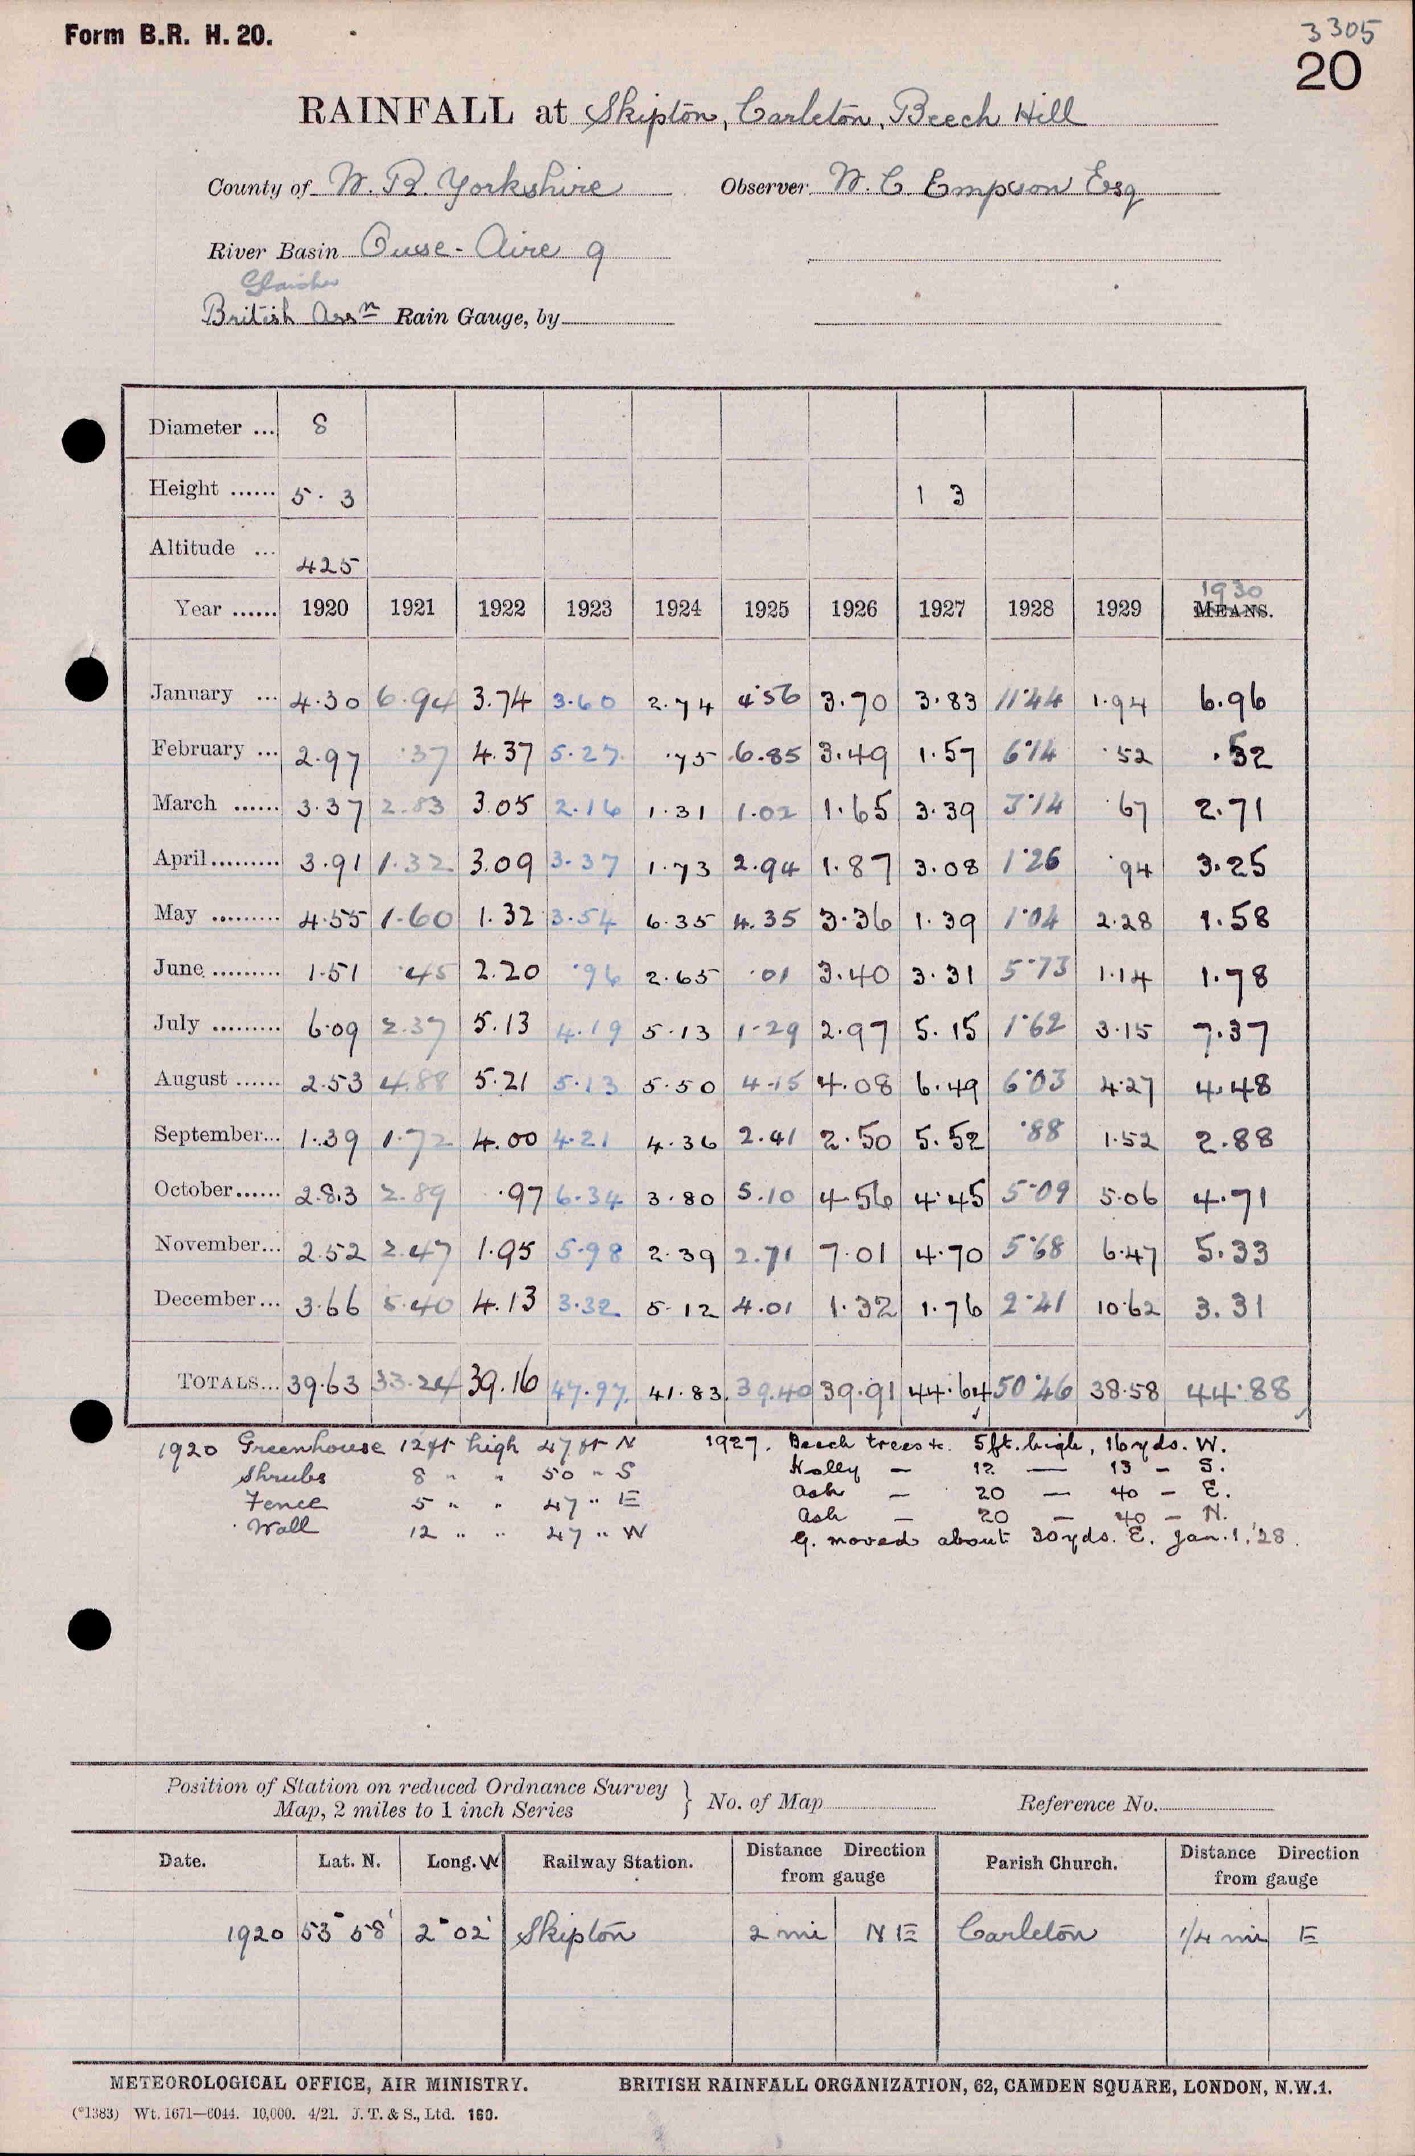 Form B.R. H. 20.
3305
20
RAINFALL at Skipton, Carleton, Beech Hill
County of W. R. Yorkshire Observer W. C. Empson Esq
River Basin Ouse - Aire 9
Glaisher
British Assn Rain Gauge, by
Diameter ... 8
Height ...... 5. 3 1 3
Altitude ... 425
1930
Year ...... 1920 1921 1922 1923 1924 1925 1926 1927 1928 1929 MEANS.
January ... 4.30 6.94 3.74 3.60 2.74 4.56 3.70 3.83 11.44 1.94 6.96
February ... 2.97 .37 4.37 5.27 .75 6.85 3.49 1.57 6.14 .52 .52
March ...... 3.37 2.83 3.05 2.16 1.31 1.02 1.65 3.39 3.14 .67 2.71
April ......... 3.91 1.32 3.09 3.37 1.73 2.94 1.87 3.08 1.26 .94 3.25
May ......... 4.55 1.60 1.32 3.54 6.35 4.35 3.36 1.39 1.04 2.28 1.58
June ......... 1.51 .45 2.20 .96 2.65 .01 3.40 3.31 5.73 1.14 1.78
July ......... 6.09 2.37 5.13 4.19 5.13 1.29 2.97 5.15 1.62 3.15 7.37
August ...... 2.53 4.88 5.21 5.13 5.50 4.15 4.08 6.49 6.03 4.27 4.48
September... 1.39 1.72 4.00 4.21 4.36 2.41 2.50 5.52 .88 1.52 2.88
October ...... 2.83 2.89 .97 6.34 3.80 5.10 4.56 4.45 5.09 5.06 4.71
November... 2.52 2.47 1.95 5.98 2.39 2.71 7.01 4.70 5.68 6.47 5.33
December ... 3.66 5.40 4.13 3.32 5.12 4.01 1.32 1.76 2.41 10.62 3.31
TOTALS... 39.63 33.24 39.16 47.97 41.83 39.40 39.91 44.64 50.46 38.58 44.88
1920 Greenhouse 12 ft high 47 ft N 1927. Beech trees &c. 5 ft. high, 16 yds. W.
Shrubs 8 " " 50 " S Holly — 12 — 13 — S.
Fence 5 " " 47 " E Ash — 20 — 40 — E.
Wall 12 " " 47 " W Ash — 20 — 40 — N.
G. moved about 30 yds. E. Jan. 1, '28.
Position of Station on reduced Ordnance Survey Map, 2 miles to 1 inch Series } No. of Map Reference No.
Date. Lat. N. Long. W Railway Station. Distance Direction from gauge Parish Church. Distance Direction from gauge
1920 53° 58' 2° 02' Skipton 2 mi NE Carleton 1/4 mi E
METEOROLOGICAL OFFICE, AIR MINISTRY. BRITISH RAINFALL ORGANIZATION, 62, CAMDEN SQUARE, LONDON, N.W.1.
(*1383) Wt. 1671—6044. 10,000. 4/21. J. T. & S., Ltd. 160.